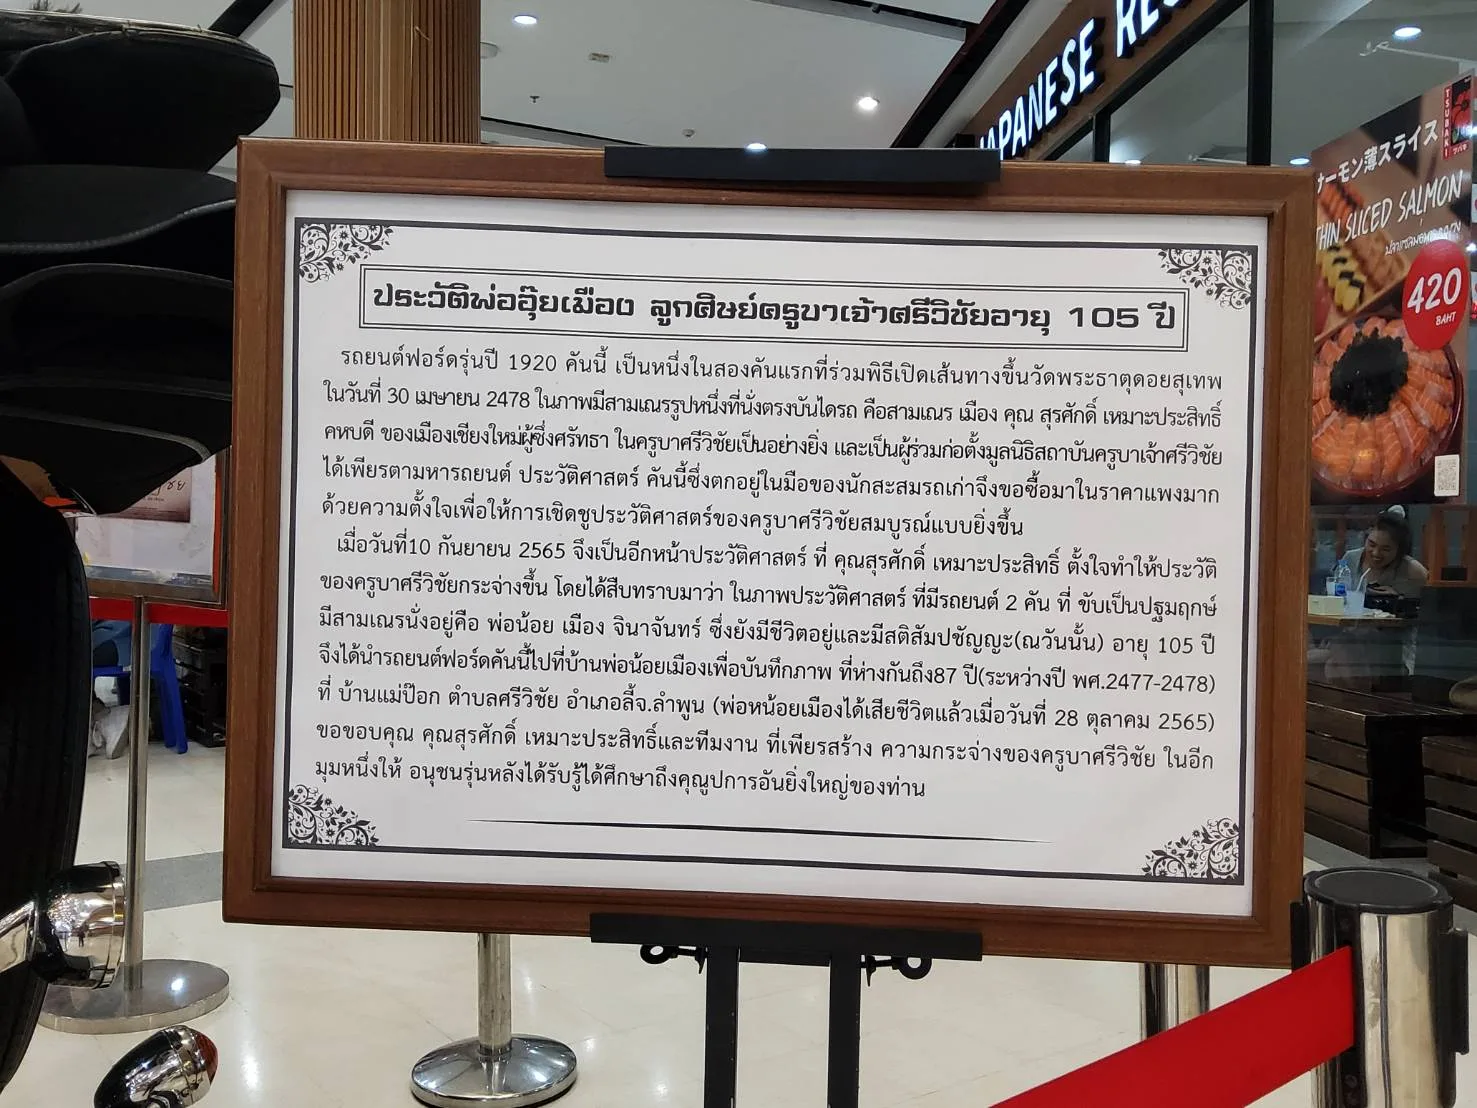 ประวัติพ่ออุ๊ยเมือง ลูกศิษย์ครูบาเจ้าศรีวิชัยอายุ 105 ปี
รถยนต์ฟอร์ดรุ่นปี 1920 คันนี้ เป็นหนึ่งในสองคันแรกที่ร่วมพิธีเปิดเส้นทางขึ้นวัดพระธาตุดอยสุเทพ
ในวันที่ 30 เมษายน 2478 ในภาพมีสามเณรรูปหนึ่งที่นั่งตรงบันไดรถ คือสามเณร เมือง คุณ สุรศักดิ์ เหมาะประสิทธิ์
คหบดี ของเมืองเชียงใหม่ผู้ซึ่งศรัทธา ในครูบาศรีวิชัยเป็นอย่างยิ่ง และเป็นผู้ร่วมก่อตั้งมูลนิธิสถาบันครูบาเจ้าศรีวิชัย
ได้เพียรตามหารถยนต์ ประวัติศาสตร์ คันนี้ซึ่งตกอยู่ในมือของนักสะสมรถเก่าจึงขอซื้อมาในราคาแพงมาก
ด้วยความตั้งใจเพื่อให้การเชิดชูประวัติศาสตร์ของครูบาศรีวิชัยสมบูรณ์แบบยิ่งขึ้น
เมื่อวันที่10 กันยายน 2565 จึงเป็นอีกหน้าประวัติศาสตร์ ที่ คุณสุรศักดิ์ เหมาะประสิทธิ์ ตั้งใจทำให้ประวัติ
ของครูบาศรีวิชัยกระจ่างขึ้น โดยได้สืบทราบมาว่า ในภาพประวัติศาสตร์ ที่มีรถยนต์ 2 คัน ที่ ขับเป็นปฐมฤกษ์
มีสามเณรนั่งอยู่คือ พ่อน้อย เมือง จินาจันทร์ ซึ่งยังมีชีวิตอยู่และมีสติสัมปชัญญะ(ณวันนั้น) อายุ 105 ปี
จึงได้นำรถยนต์ฟอร์ดคันนี้ไปที่บ้านพ่อน้อยเมืองเพื่อบันทึกภาพ ที่ห่างกันถึง87 ปี(ระหว่างปี พศ.2477-2478)
ที่ บ้านแม่ป๊อก ตำบลศรีวิชัย อำเภอลี้จ.ลำพูน (พ่อหน้อยเมืองได้เสียชีวิตแล้วเมื่อวันที่ 28 ตุลาคม 2565)
ขอขอบคุณ คุณสุรศักดิ์ เหมาะประสิทธิ์และทีมงาน ที่เพียรสร้าง ความกระจ่างของครูบาศรีวิชัย ในอีก
มุมหนึ่งให้ อนุชนรุ่นหลังได้รับรู้ได้ศึกษาถึงคุณูปการอันยิ่งใหญ่ของท่าน
JAPANESE
サーモン薄スライス
TSUBAKI
THIN SLICED SALMON
420
BAHT